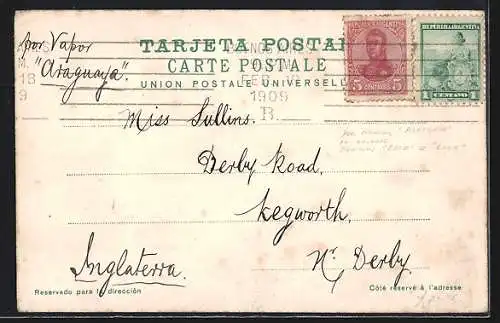 por Vapor
"Araguaya".
TARJETA POSTAL
CARTE POSTALE
UNION POSTALE UNIVERSELLE
BUENOS AIRES
FEB 10
1909
B.
18
9
REPUBLICA ARGENTINA
5 CENTAVOS 5
REPUBLICA ARGENTINA
1 CENTAVO 1
Miss Sullins.
Derby Road.
Kegworth.
Nr. Derby
Inglaterra.
Reservado para la dirección
Côté réservé à l'adresse